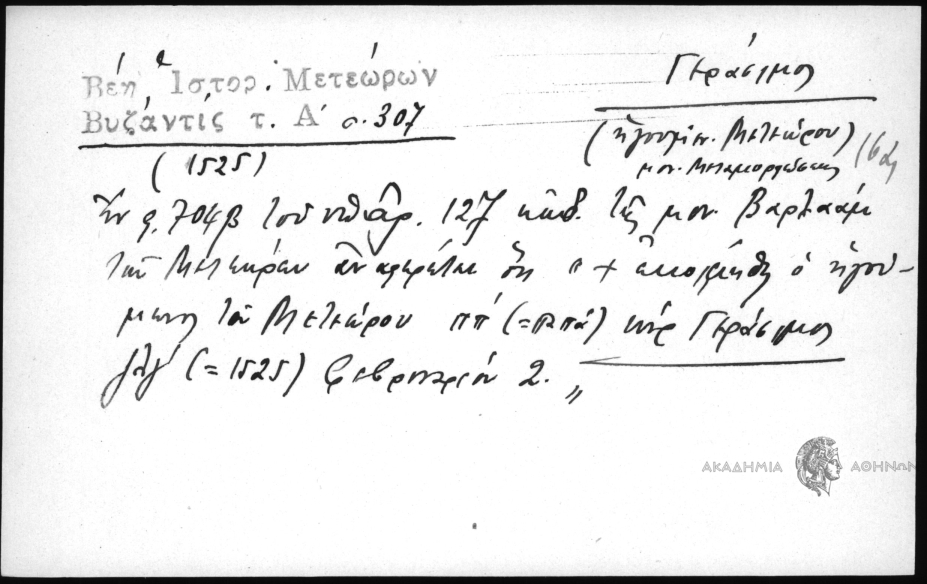 Βέη, Ἱστορ. Μετεώρων
Βυζάντίς τ. Α΄ σ. 307
(1525)
Γεράσιμος
(ἡγούμεν. Μετεώρου)
μον. Μεταμορφώσεως
Ἐν φ. 704β τοῦ ὑπ' ἀρ. 127 κώδ. τῆς μον. Βαρλαάμ
τῶν Μετεώρων ἀναφέρεται ὅτι " + ἐκοιμήθη ὁ ἡγού-
μενος τοῦ Μετεώρου ππ (=παπᾶ) κὺρ Γεράσιμος
͵ζλγ (=1525) Φεβρουαρίου 2. "
ΑΚΑΔΗΜΙΑ ΑΘΗΝΩΝ